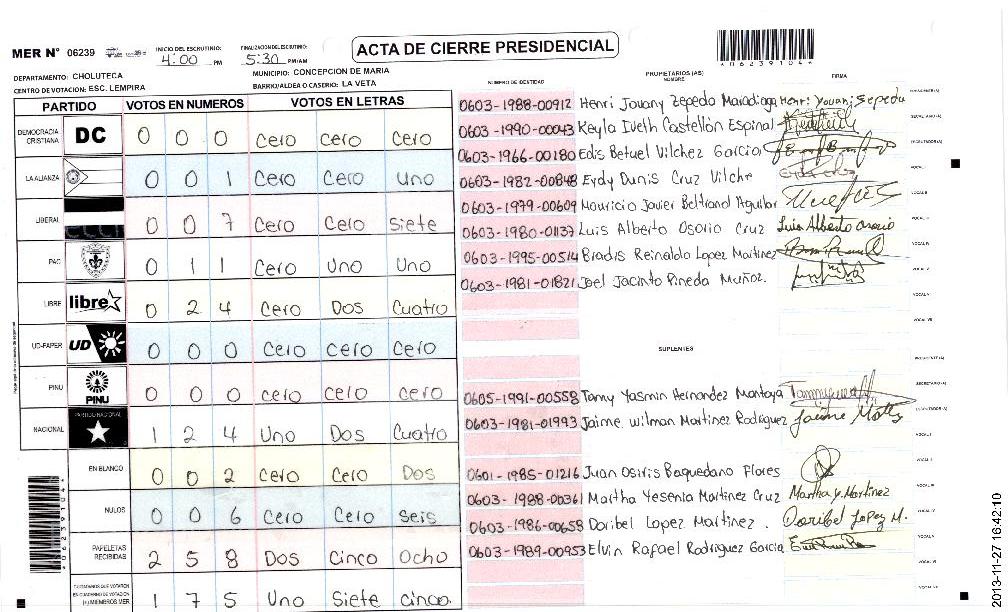 MER N° 06239
INICIO DEL ESCRUTINIO: 4:00 PM
FINALIZACION DEL ESCRUTINIO: 5:30 PM/AM
ACTA DE CIERRE PRESIDENCIAL
* 0 6 2 3 9 1 0 4 *
DEPARTAMENTO: CHOLUTECA
MUNICIPIO: CONCEPCION DE MARIA
CENTRO DE VOTACION: ESC. LEMPIRA
BARRIO/ALDEA O CASERIO: LA VETA
PARTIDO VOTOS EN NUMEROS VOTOS EN LETRAS
DEMOCRACIA CRISTIANA DC 0 0 0 Cero Cero Cero
LA ALIANZA 0 0 1 Cero Cero Uno
LIBERAL 0 0 7 Cero Cero Siete
PAC 0 1 1 Cero Uno Uno
LIBRE libre 0 2 4 Cero Dos Cuatro
UD-FAPER UD 0 0 0 Cero Cero Cero
PINU PINU 0 0 0 cero cero cero
NACIONAL PARTIDO NACIONAL 1 2 4 Uno Dos Cuatro
EN BLANCO 0 0 2 Cero Cero Dos
NULOS 0 0 6 Cero Cero Seis
PAPELETAS RECIBIDAS 2 5 8 Dos Cinco Ocho
CIUDADANOS QUE VOTARON EN CUADERNO DE VOTACION (+) MIEMBROS MER 1 7 5 Uno Siete cinco.
NUMERO DE IDENTIDAD PROPIETARIOS (AS) NOMBRE FIRMA
0603-1988-00912 Henri Jouany Zepeda Maradiaga
0603-1990-00043 Keyla Iveth Castellón Espinal
0603-1966-00180 Edis Betuel Vilchez Garcia
0603-1982-00848 Eydy Dunis Cruz Vilche
0603-1979-00609 Mauricio Javier Beltrand Aguilar
0603-1980-01137 Luis Alberto Osorio Cruz Luis Alberto osorio
0603-1995-00514 Bradis Reinaldo Lopez Martinez
0603-1981-01821 Joel Jacinto Pineda Muñoz.
SUPLENTES
0605-1991-00558 Tanny Yasmin Hernandez Montoya
0603-1981-01993 Jaime Wilman Martinez Rodriguez
0601-1985-01216 Juan Osiris Baquedano Flores
0603-1988-00361 Martha Yesenia Martinez Cruz Martha y. Martinez
0603-1986-00658 Daribel Lopez Martinez. Daribel Lopez M.
0603-1989-00953 Elvin Rafael Rodriguez Garcia
2013-11-27 16:42:10